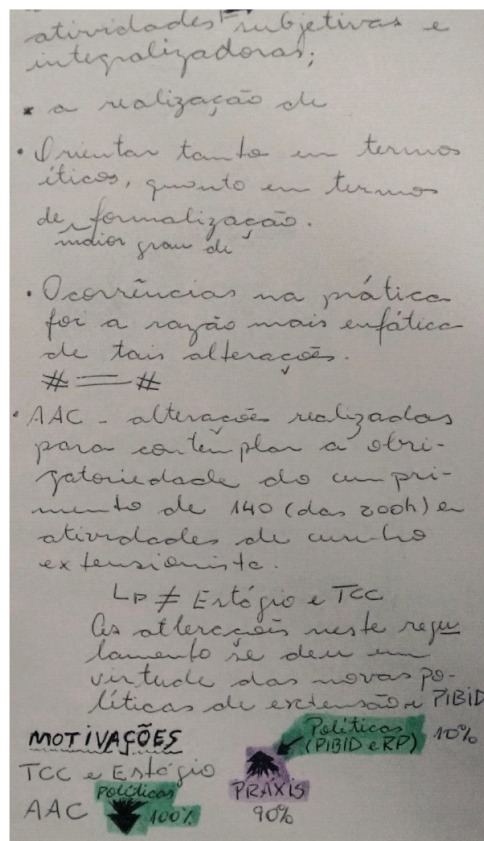 atividades subjetivas e
integralizadoras;
* a realização de
• Orientar tanto em termos
éticos, quanto em termos
de formalização.
maior grau de
• Ocorrências na prática
foi a razão mais enfática
de tais alterações.
# = #
• AAC - alterações realizadas
para contemplar a obri-
gatoriedade do cumpri-
mento de 140 (das 200h) em
atividades de cunho
extensionista.
↳ ≠ Estágio e TCC
As alterações neste regu
lamento se deu em
virtude das novas po-
líticas de extensão e PIBID
MOTIVAÇÕES
Políticas
(PIBID e RP) 10%
TCC e Estágio
PRÁXIS
90%
AAC
Políticas
100%